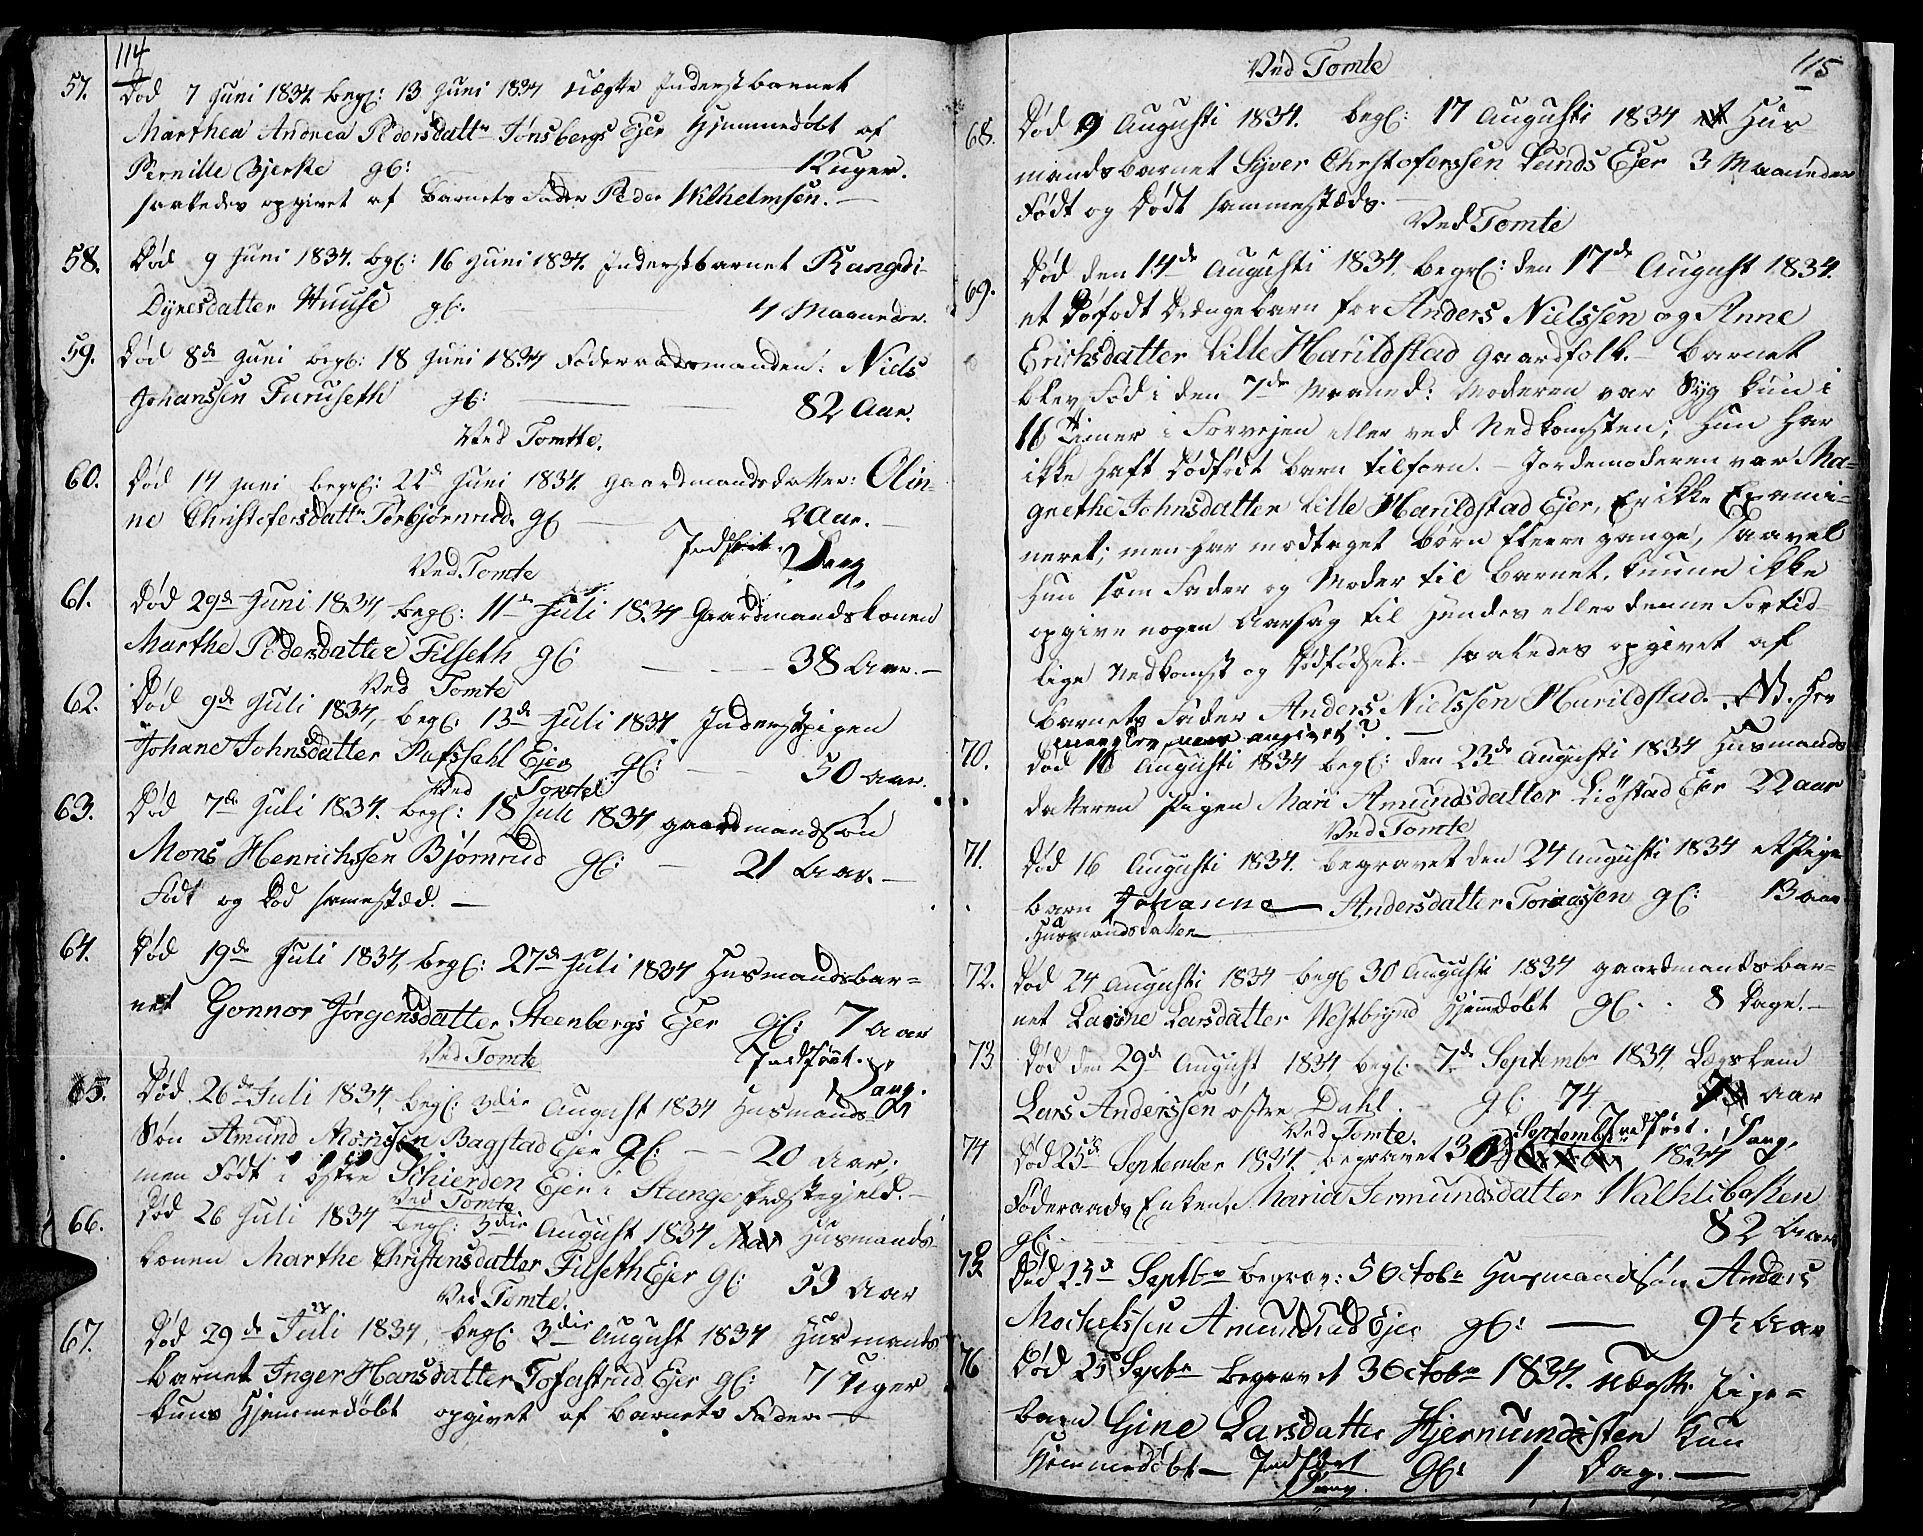 114
57. Død 7 Juni 1834. begr: 13 Juni 1834 uægte Inderstbarnet
Marthea Andrea Pedersdattr Jønsbergs Ejer Hjemmedøbt af
Pernille Bjerke gl: 12 uger.
saaledes opgivet af Barnets Fader Peder Wilhelmsen. —
58. Død 9 Juni 1834. begr: 16 Juni 1834. Inderstbarnet Rangdi-
Dyresdatter Huuse gl. 4 Maaneder.
59. Død 8de Juni begr: 18 Juni 1834 Føderaadsmanden: Niels
Johanssen Furuseth gl: 82 Aar.
Ved Tomtte.
60. Død 14 Juni begr: 22d Juni 1834. gaardmandsdatter: Olin-
ne Christofersdattr Torbjørnrud. gl 2 Aar. —
Indført.
Ved Tomte
61. Død 29de Juni 1834, begr: 11te Juli 1834 Gaardmandskonen
Marthe Pedersdatter Filseth gl: 38 Aar. —
Ved Tomte
62. Død 9de Juli 1834, begr: 13de Juli 1834. Inderstpigen
Johane Johnsdatter Ejer gl: 50 Aar.
Ved Tomte
63. Død 7de Juli 1834. begr: 18 Juli 1834 gaardmandsøn
Mons Henrichssen Bjørnrud gl: 21 Aar. —
Født og Død samested. —
64. Død 19de Juli 1834, begr: 27de Juli 1834 Husmandsbar-
net Gonnor Jørgensdatter Steenbergs Ejer gl: 7 Aar
Ved Tomte Indført.
65. Død 26de Juli 1834, begr: 3die August 1834 Husmands-
Søn Amund Monssen Bagstad Ejer gl: 20 Aar;
men Født i østre Schierden Ejer i Stange Præstegjeld. —
Ved Tomte
66. Død 26 Juli 1834 begr: 3die August 1834 Husmands-
konen Marthe Christensdatter Filseth Ejer gl: 53 Aar
Ved Tomte.
67. Død 29de Juli 1834, begr: 3die August 1834 Husmands
Barnet Inger Hansdatter Tofastrud Ejer gl: 7 Uger
kuns Hjemmedøbt opgivet af Barnets Fader. —
115
Ved Tomte
68. Død 9 Augusti 1834. begr: 17 Augusti 1834 Hus-
mandsbarnet Syver Christoferssen Lunds Ejer 3 Maaneder
Født og Dødt sammesteds. —
Ved Tomte
69. Død den 14de Augusti 1834. begr: den 17de August 1834.
et Døfødt Drengebarn for Anders Nielssen og Anne
Erichsdatter Lille Harildstad Gaardfolk. — Barnet
blev Fød i den 7de Maaned: Moderen var Syg kun i
16 Timer i Forvejen eller ved Nedkomsten; Hun har
ikke Haft Dødfødt Barn tilforn. — Jordemoderen var Ma-
grethe Johnsdatter Lille Harildstad Ejer, Er ikke Exami-
neret; men har modtaget Børn fleere gange, saavel
Hun som Fader og Moder til Barnet, kunne ikke
opgive nogen Aarsag til Hendes eller denne Fortid-
lige Nedkomst og Dødfødsel. — saaledes opgivet af
Barnets Fader Anders Nielssen Harildstad. NB.
angivet? —
70. Død 16 Augusti 1834 begr: den 23de Augusti 1834 Husmands
datteren Pigen Mari Amundsdatter Liøstad Ejer 22 aar
Ved Tomte
71. Død 16 Augusti 1834. begravet den 24 Augusti 1834 et Pige
barn Johanne — Andersdatter Tomassen gl: 13 aar
Husmandsdatter
72. Død 24 Augusti 1834 begr 30 Augusti 1834 gaardmandsbar-
net Larine Larsdatter Westbynd Hjemdøbt gl. 8 Dage. —
73 Død den 29d August 1834 begr: 7de Septembr 1834. Lægslem
Lars Anderssen østre Dahl. gl: 74. aar
Ved Tomte. September Indført.
74 Død 25de September 1834. begravet 1834
Føderaads Enken, Maria Jermundsdatter
gl: 82 Aar
75 Død 23de Septbr begrav: 5 Octobr Husmandsøn Anders
Amundrud Ejer gl: — 9½ Aar
76 Død 25 Septbr begravet 3 Octobr 1834. uægte Pige-
barn Gine Larsdatter Hjernumdisten kun
Hjemmedøbt — Indført gl: 1 Dag. —